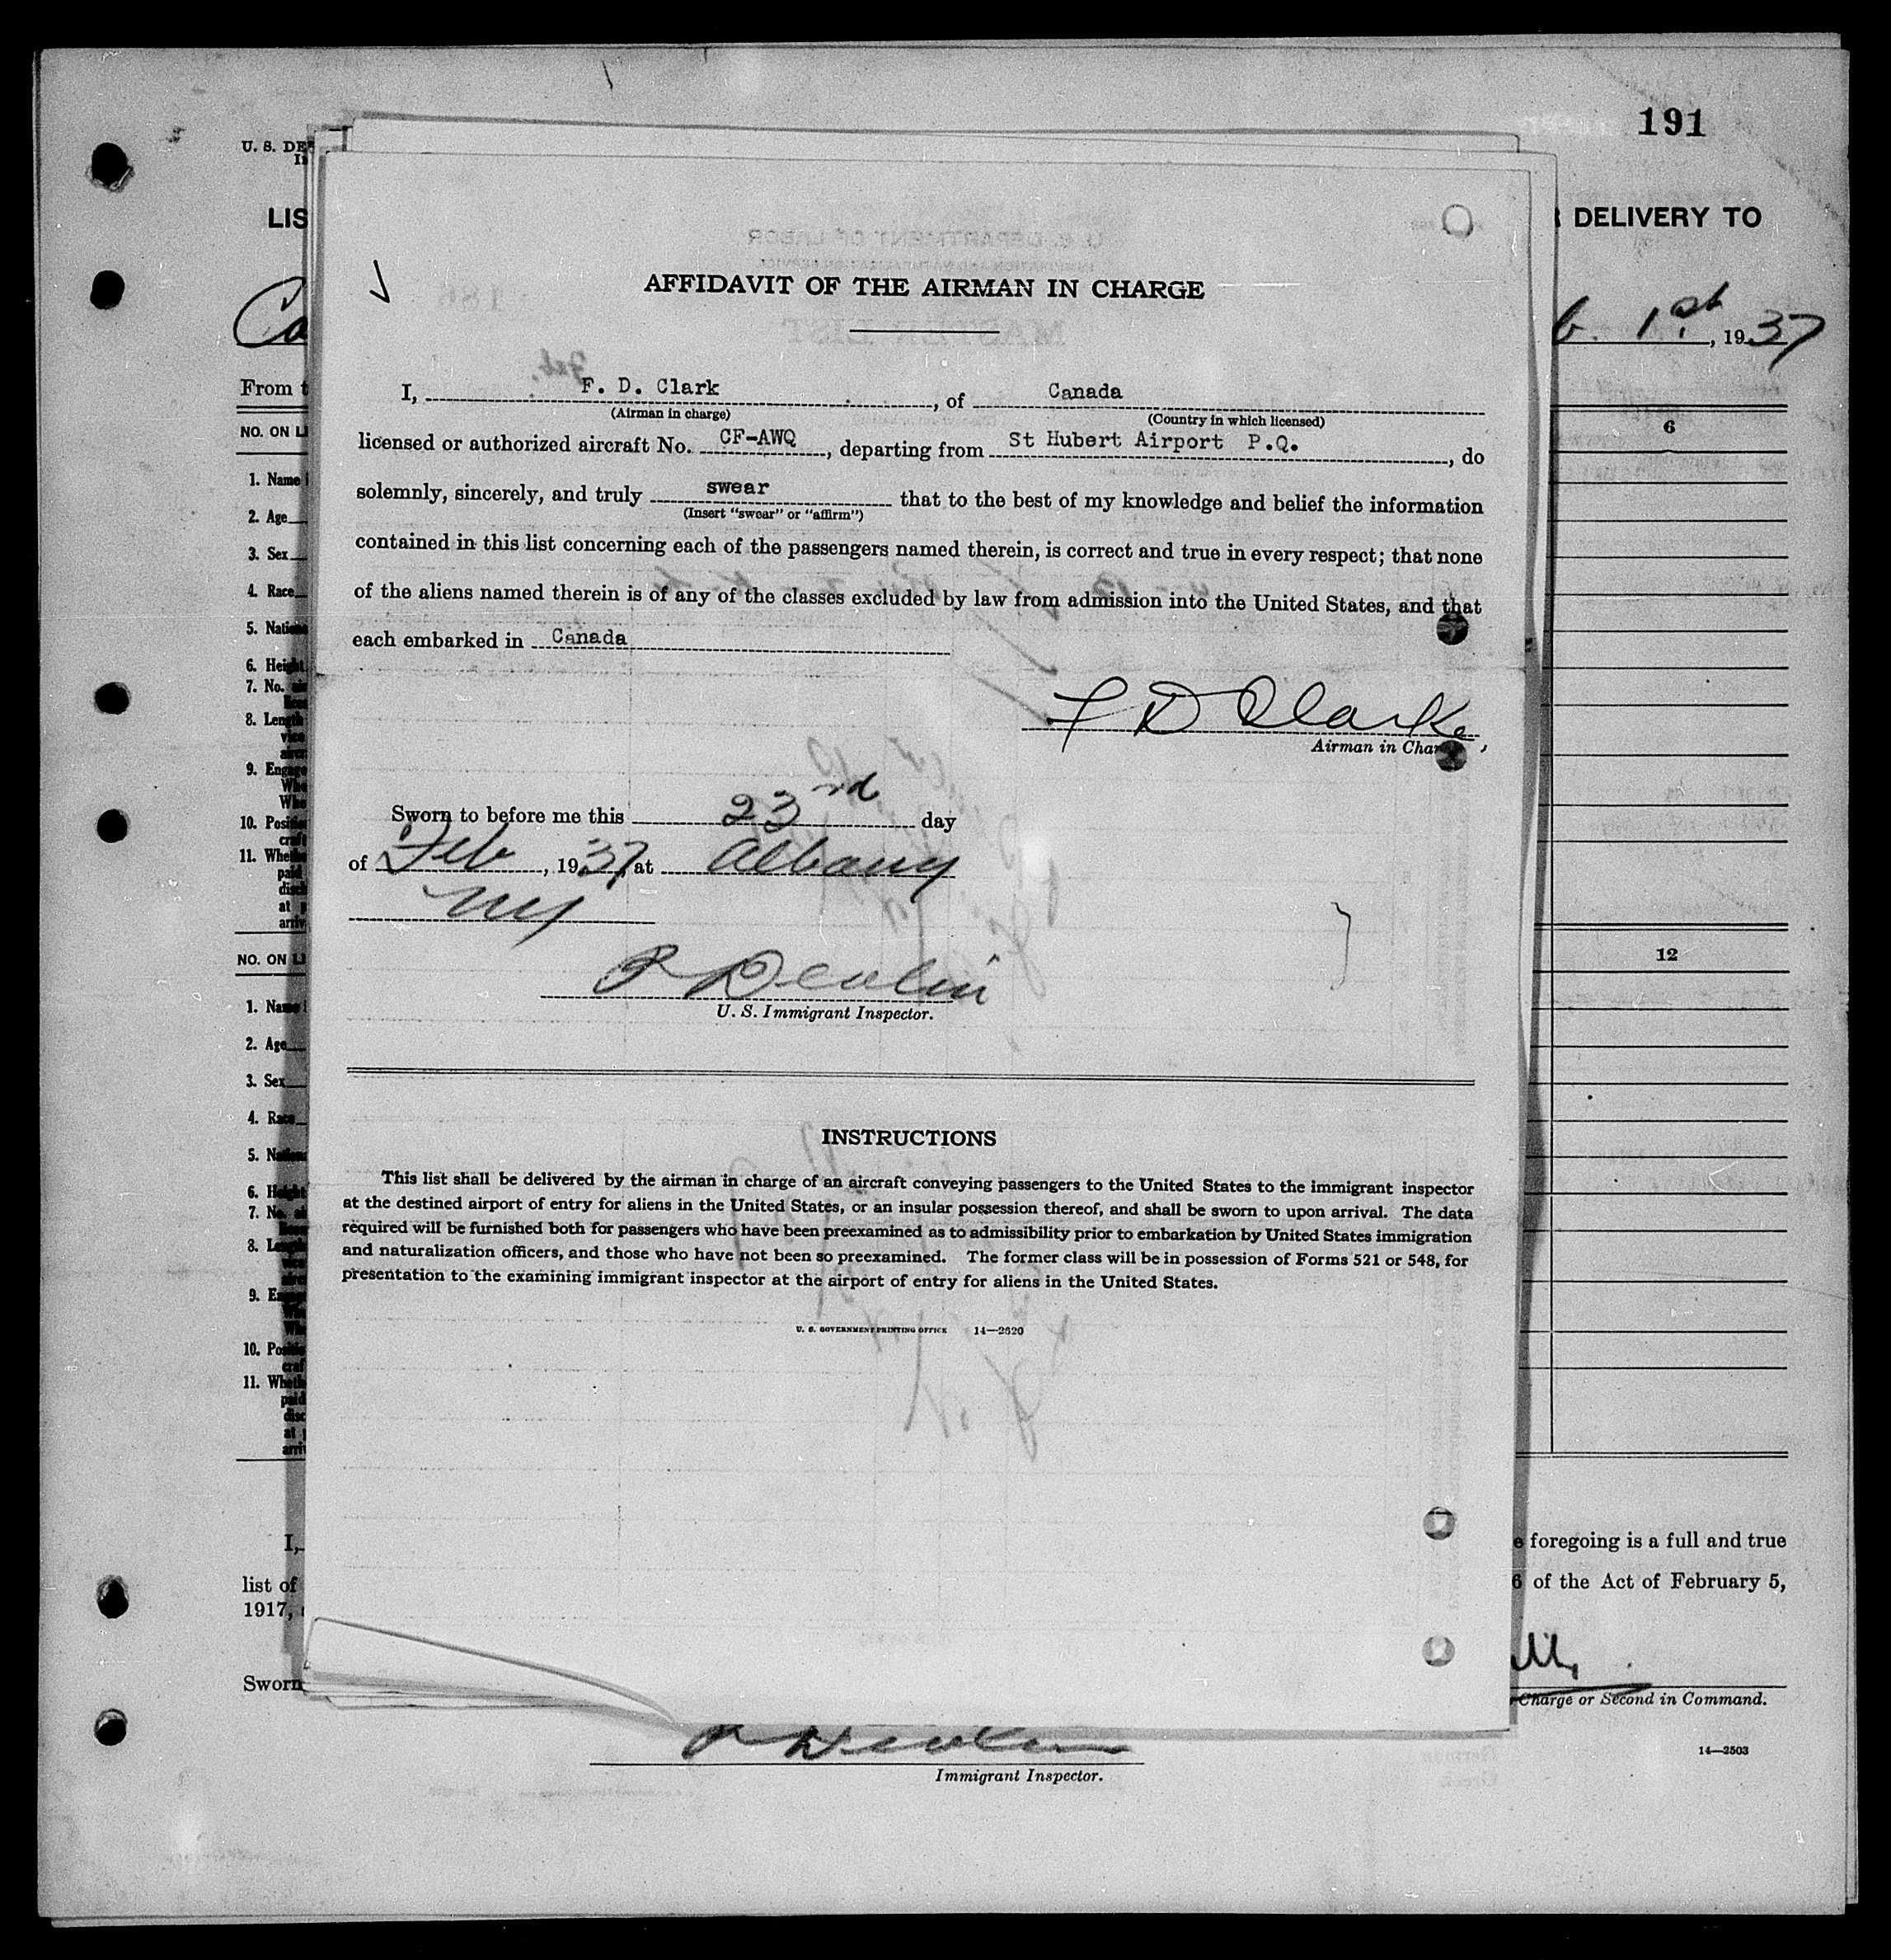 191
U. S. DE
LIS
R DELIVERY TO
1st, 1937
From t
NO. ON LI
6
1. Name
2. Age
3. Sex
4. Race
5. Natio
6. Height
7. No.
8. Length
9. Engage
10. Positio
11. Whethe
NO. ON LI
12
1. Name
2. Age
3. Sex
4. Race
5. Nation
6. Height
7. No.
8. Length
9. En
10. Positio
11. Wheth
AFFIDAVIT OF THE AIRMAN IN CHARGE
I, F. D. Clark, of Canada
(Airman in charge) (Country in which licensed)
licensed or authorized aircraft No. CF-AWQ, departing from St Hubert Airport P.Q., do
solemnly, sincerely, and truly swear that to the best of my knowledge and belief the information
(Insert "swear" or "affirm")
contained in this list concerning each of the passengers named therein, is correct and true in every respect; that none
of the aliens named therein is of any of the classes excluded by law from admission into the United States, and that
each embarked in Canada
F D Clarke
Airman in Char
Sworn to before me this 23rd day
of Feb, 1937, at Albany
NY
P Devlin
U. S. Immigrant Inspector.
INSTRUCTIONS
This list shall be delivered by the airman in charge of an aircraft conveying passengers to the United States to the immigrant inspector
at the destined airport of entry for aliens in the United States, or an insular possession thereof, and shall be sworn to upon arrival. The data
required will be furnished both for passengers who have been preexamined as to admissibility prior to embarkation by United States immigration
and naturalization officers, and those who have not been so preexamined. The former class will be in possession of Forms 521 or 548, for
presentation to the examining immigrant inspector at the airport of entry for aliens in the United States.
U. S. GOVERNMENT PRINTING OFFICE 14—2620
I,
e foregoing is a full and true
list of
6 of the Act of February 5,
1917,
Sworn
Charge or Second in Command.
P Devlin
Immigrant Inspector.
14—2503